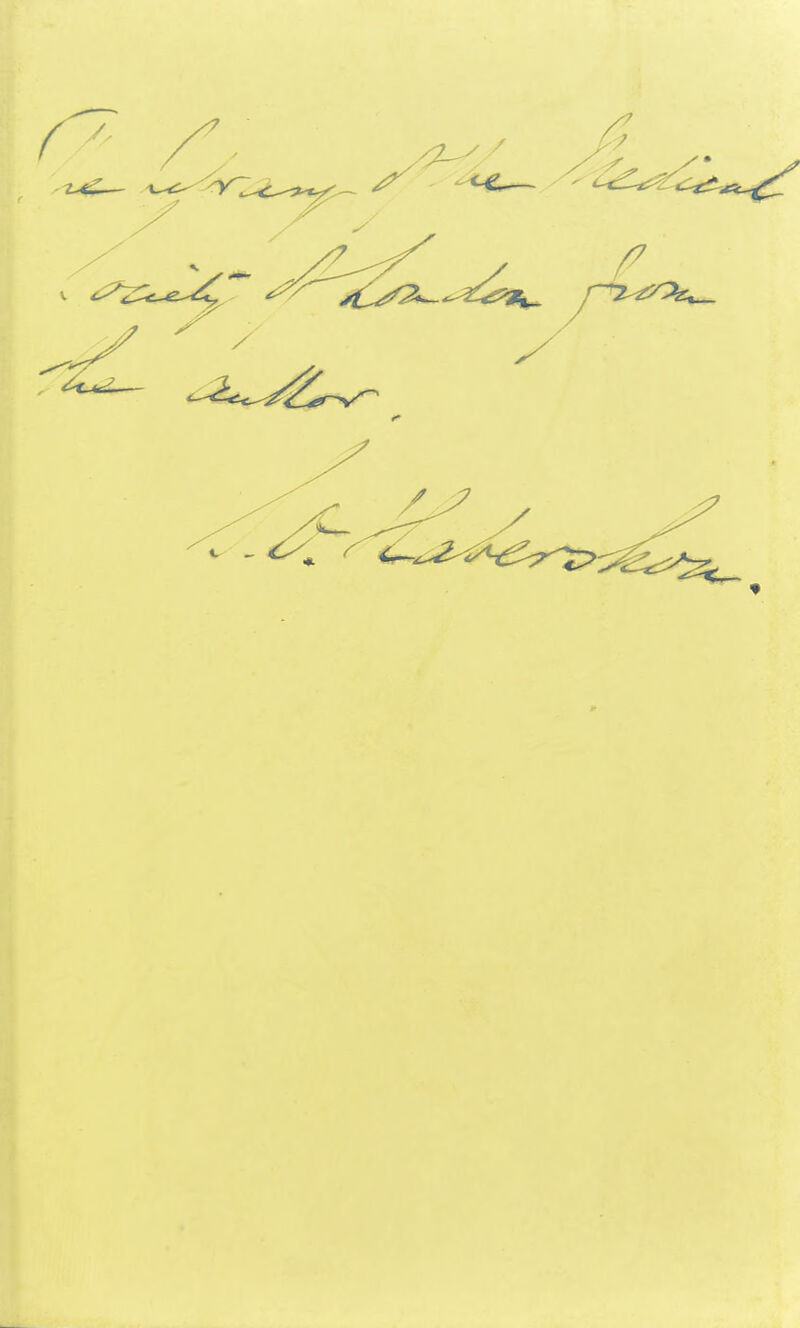 The Library of the Medical
Society of London from
the author.
S. O. Habershon.